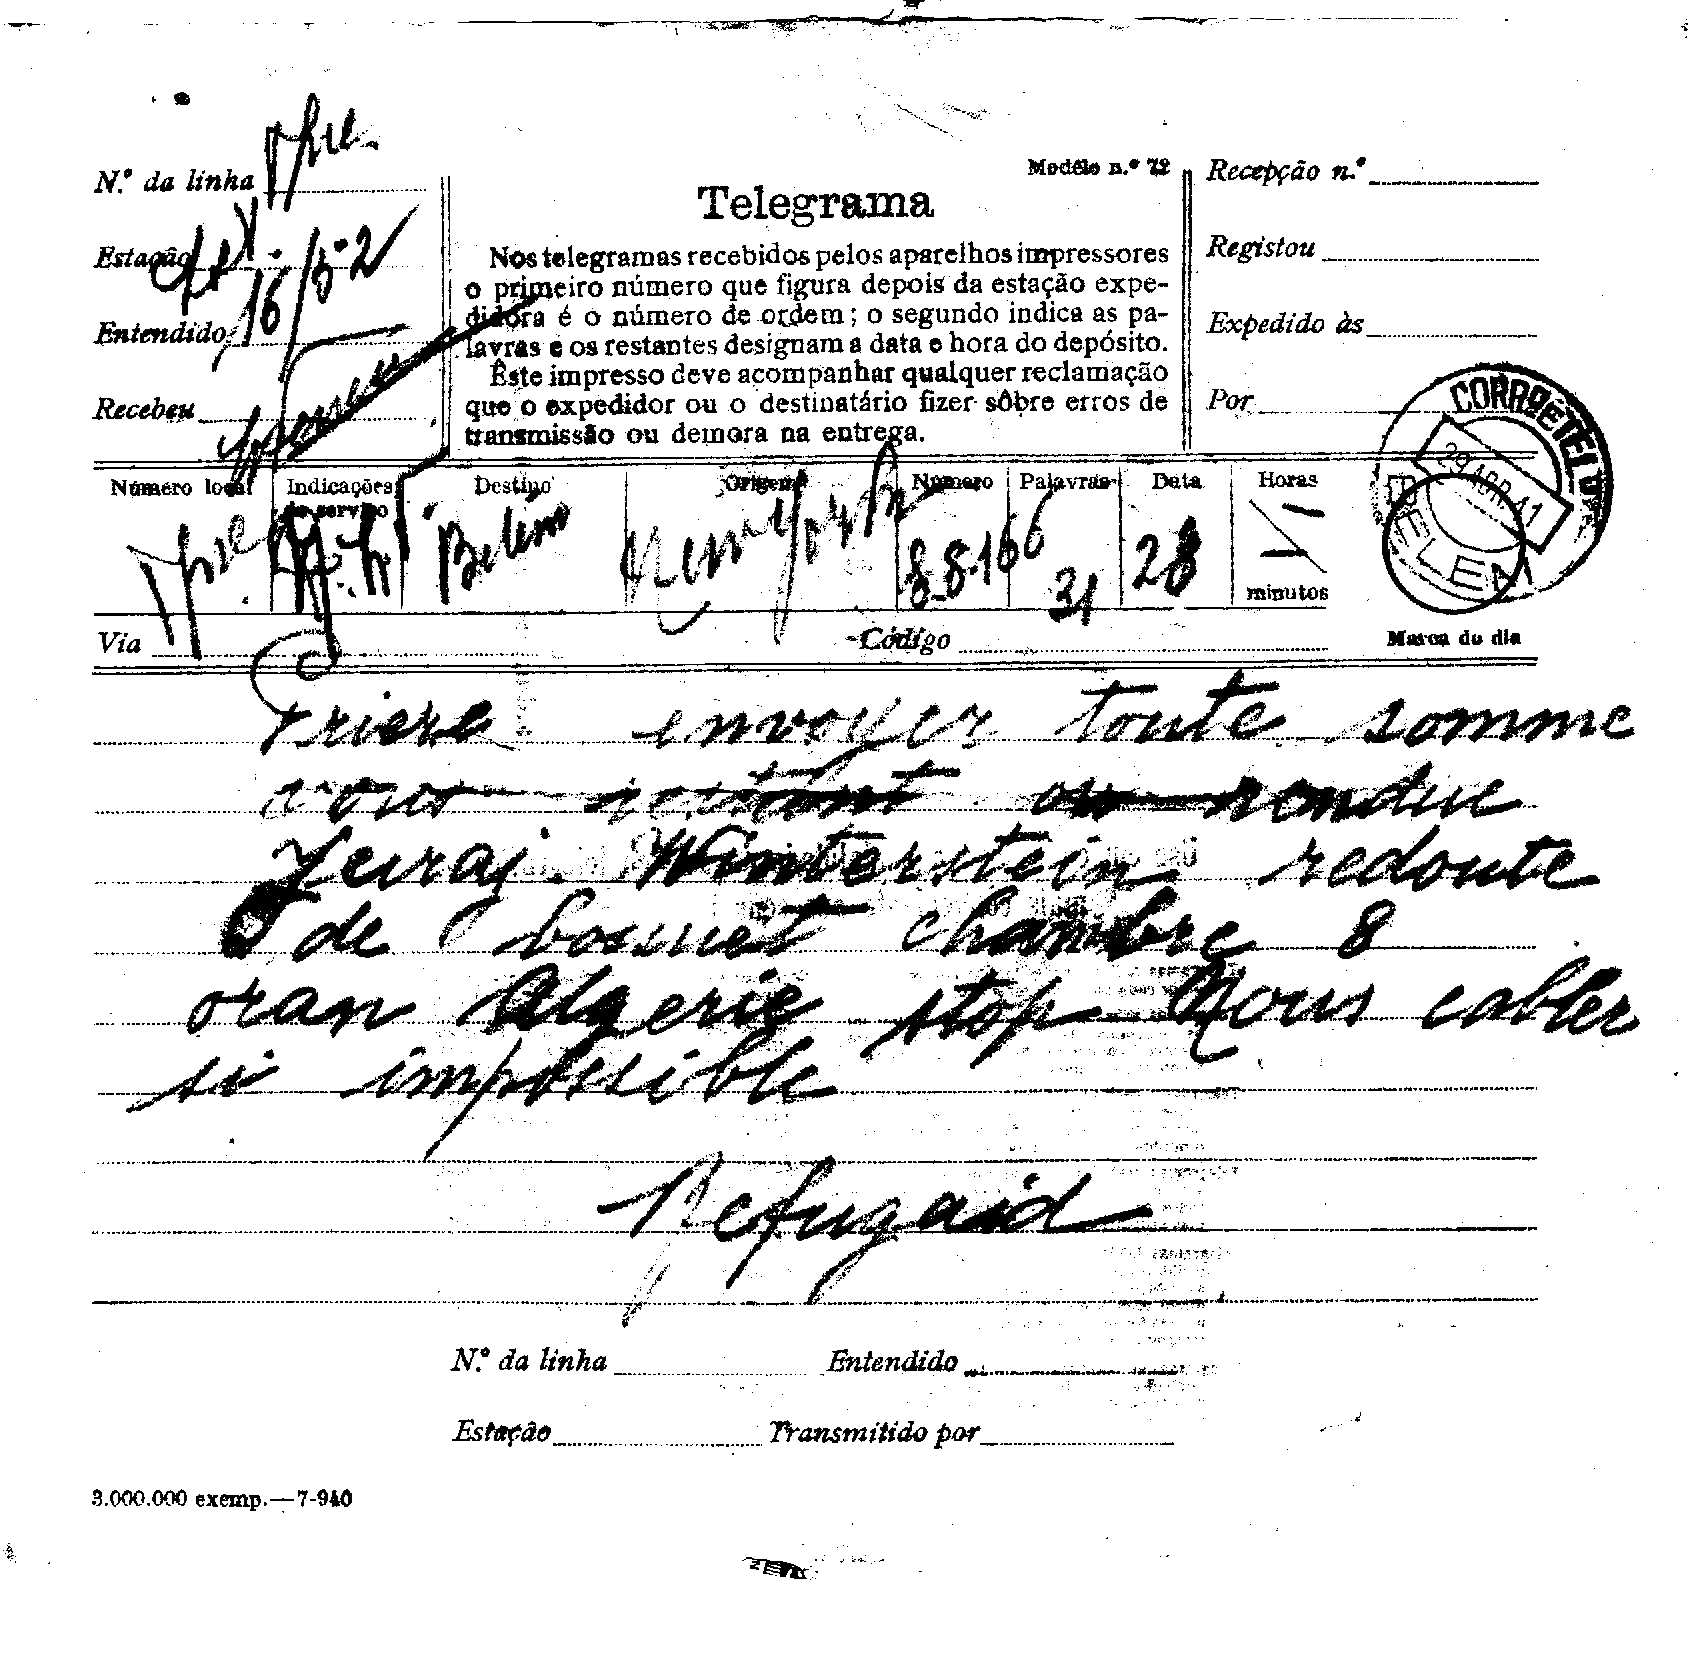 N.º da linha
Estação
Entendido 16/5-2
Recebeu
Modêlo n.º 72
Telegrama
Nos telegramas recebidos pelos aparelhos impressores
o primeiro número que figura depois da estação expe-
didora é o número de ordem; o segundo indica as pa-
lavras e os restantes designam a data e hora do depósito.
Êste impresso deve acompanhar qualquer reclamação
que o expedidor ou o destinatário fizer sôbre erros de
transmissão ou demora na entrega.
Recepção n.º
Registou
Expedido às
Por
CORRO E TEL
29 ABR 41
BELEM
Número local Indicações de serviço Destino Origem Número Palavras Data Horas
Belem New York 31 28
minutos
Via Código Marca do dia
Priere envoyer toute somme
vous restant ou rendue
Jeuraj Winterstein redoute
de bonnet chambre 8
oran Algerie stop Nous cabler
si impossible
Refugaid
N.º da linha Entendido
Estação Transmitido por
3.000.000 exemp.—7-940